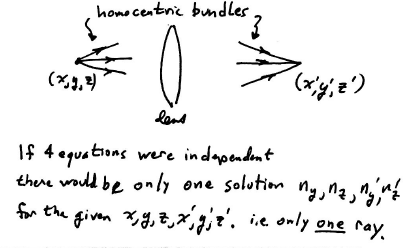 homocentric bundles
(x,y,z)
(x',y',z')
lens
If 4 equations were independent
there would be only one solution n_y, n_z, n_y', n_z'
for the given x,y,z,x',y',z'. i.e only one ray.